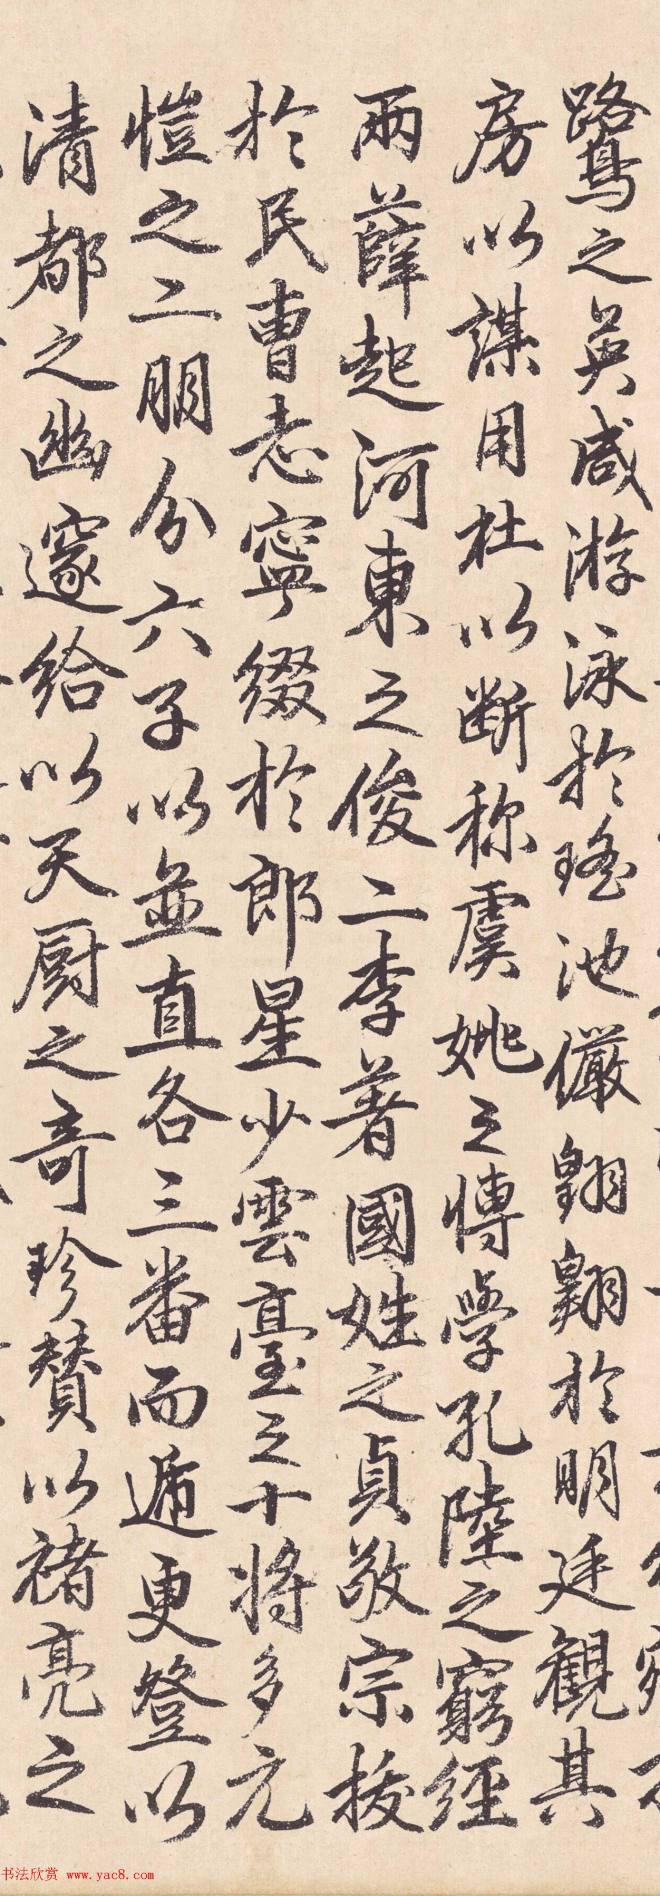 鷺之英咸游泳於瑤池儼翱翔於明廷觀其
房以謀用杜以断称虞姚之博學孔陸之窮經
兩薛起河東之俊二李著國姓之貞敬宗拔
於民曹志寧綴於郎星少雲臺之十將多元
愷之二朋分六子以並直各三番而遞更登以
清都之幽邃給以天厨之奇珍賛以褚亮之
书法欣赏 www.yac8.com